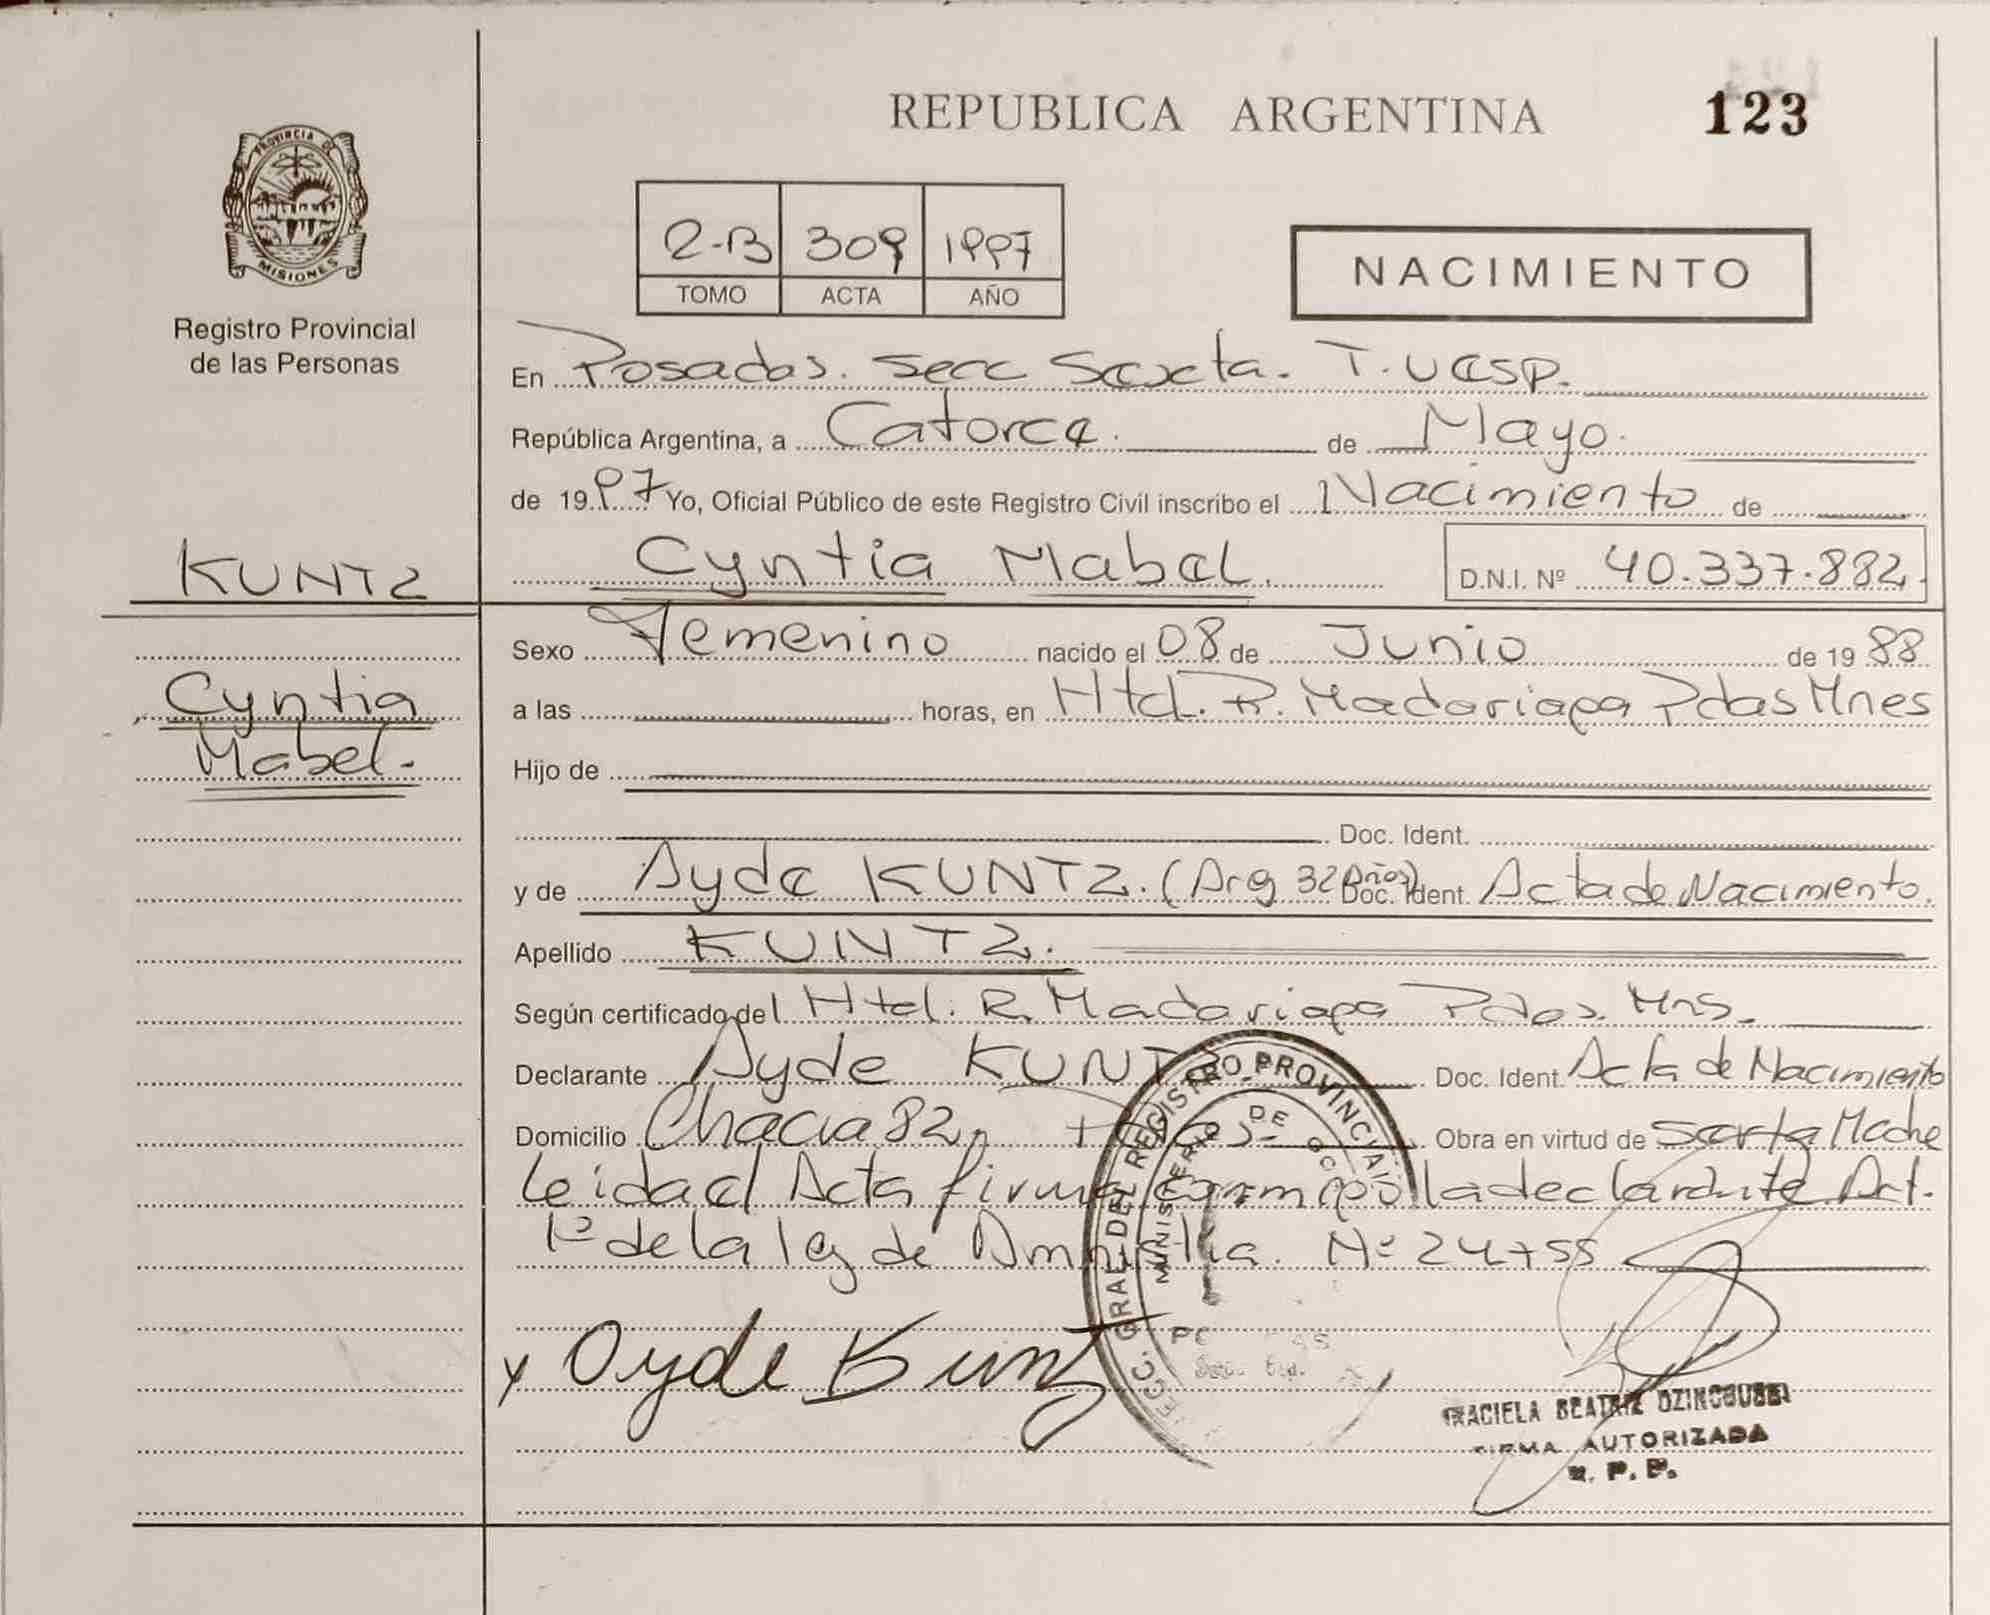 REPUBLICA ARGENTINA
123
PROVINCIA DE
MISIONES
Registro Provincial
de las Personas
2-B 309 1997
TOMO ACTA AÑO
NACIMIENTO
En Posadas. Secc Sexta.
República Argentina, a Catorce. de Mayo.
de 1997 Yo, Oficial Público de este Registro Civil inscribo el Nacimiento de
KUNTZ
Cyntia Mabel. D.N.I. Nº 40.337.882.
Sexo Femenino nacido el 08 de Junio de 1988
Cyntia
Mabel.
a las horas, en Htal. R. Madariaga Pdas Mnes
Hijo de
Doc. Ident.
y de Ayde KUNTZ. (Arg 32 años) Doc. Ident. Acta de Nacimiento.
Apellido KUNTZ.
Según certificado del Htal. R. Madariaga Pdas. Mns.
Declarante Ayde KUNTZ Doc. Ident. Acta de Nacimiento
Domicilio Chacra 82, Pdas. Obra en virtud de ser la Madre
Leida el Acta firma conmigo la declarante Art.
1º de la ley de Amnistia. Nº 24755
DEL REGISTRO PROVINCIAL
MINISTERIO DE GO
x Oyde Kuntz
GRACIELA BEATRIZ
FIRMA AUTORIZADA
R. P. P.